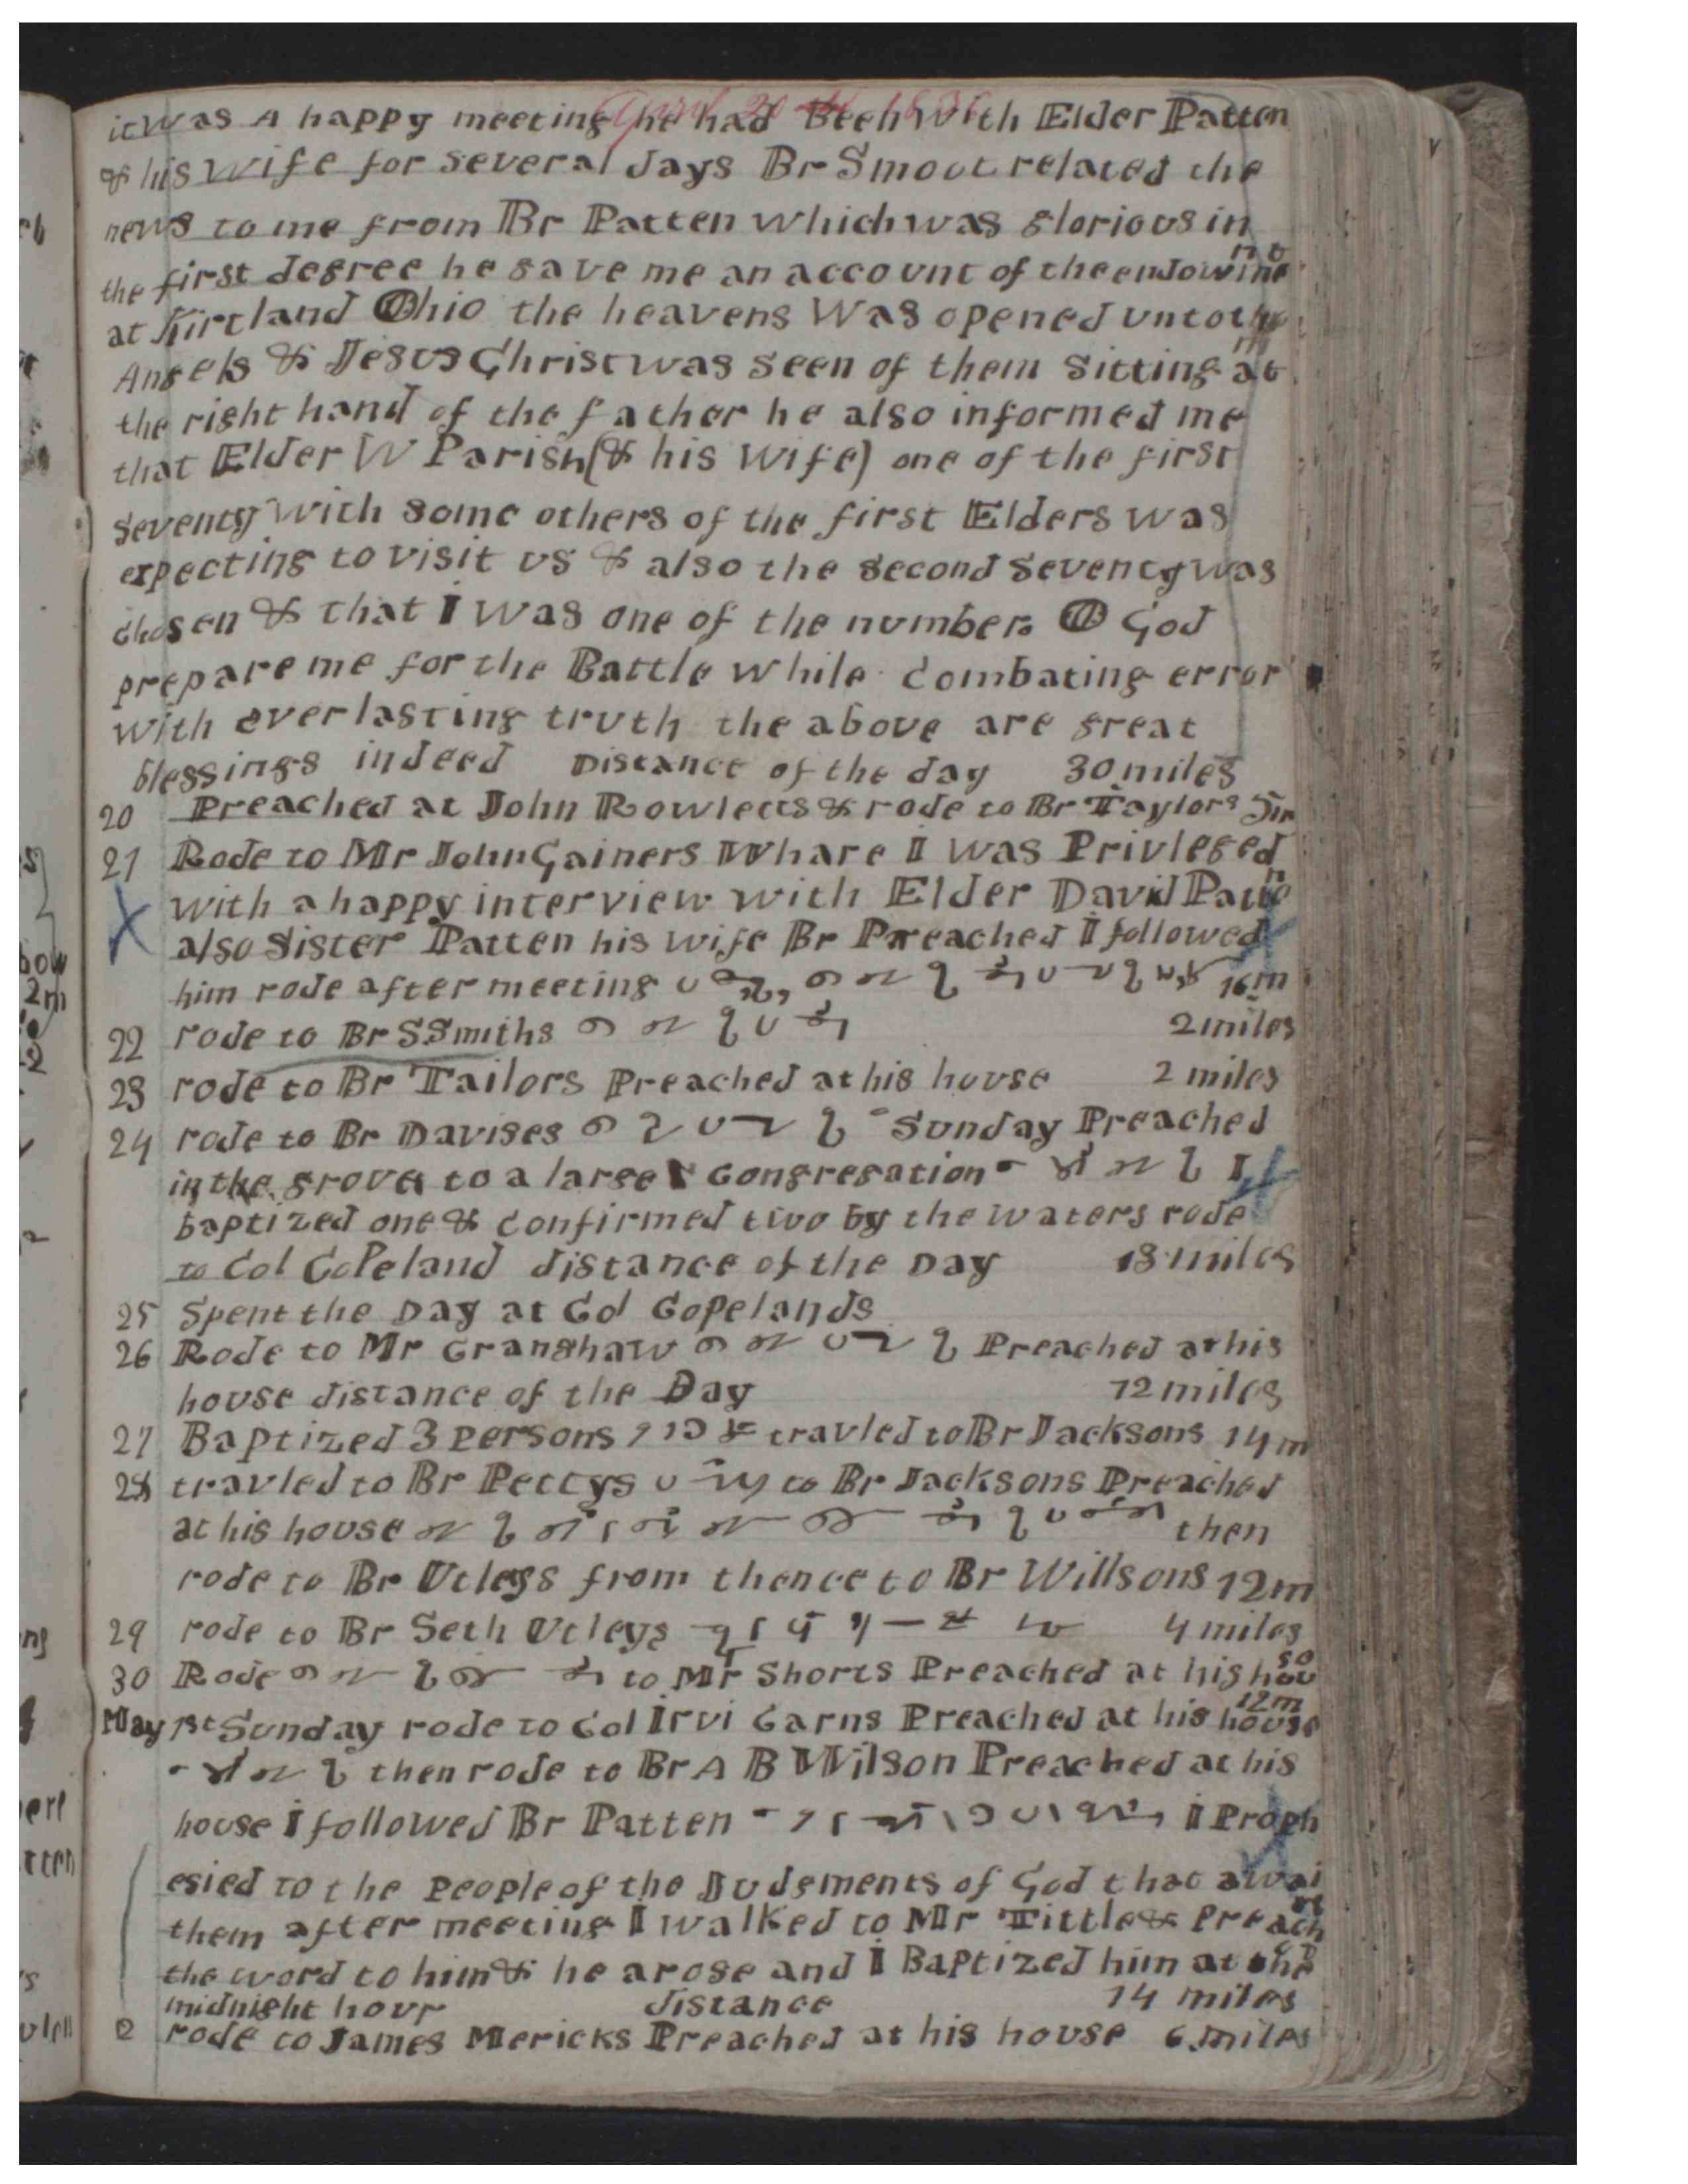 April 20th 1836
it was A happy meeting he had Been With Elder Patten
& his wife for several days Br Smoot related the
news to me from Br Patten which was glorious in
the first degree he gave me an account of the endowment
at Kirtland Ohio the heavens Was opened unto them
Angels & Jesus Christ was seen of them sitting at
the right hand of the father he also informed me
that Elder W Parish (& his Wife) one of the first
seventy with some others of the first Elders was
expecting to visit us & also the second seventy was
chosen & that I was one of the number. O God
prepare me for the Battle while combating error
with everlasting truth the above are great
blessings indeed Distance of the day 30 miles
20 Preached at John Rowletts & rode to Br Taylors
21 Rode to Mr John Gainers Whare I was Privleged
with a happy interview with Elder David Patten
also Sister Patten his wife Br Preached I followed
him rode after meeting 16 m
22 rode to Br S Smiths 2 miles
23 rode to Br Tailors Preached at his house 2 miles
24 rode to Br Davises Sunday Preached
in the grove to a large congregation I
baptized one & confirmed two by the waters rode
to Col Copeland distance of the Day 18 miles
25 Spent the Day at Col Copelands
26 Rode to Mr Cranshaw Preached at his
house distance of the Day 12 miles
27 Baptized 3 persons travled to Br Jacksons 14 m
28 travled to Br Pettys to Br Jacksons Preached
at his house then
rode to Br Utleys from thence to Br Willsons 12 m
29 rode to Br Seth Utleys 4 miles
30 Rode to Mr Shorts Preached at his house
12 m
May 1st Sunday rode to Col Irvi Carns Preached at his house
then rode to Br A B Wilson Preached at his
house I followed Br Patten I Proph
esied to the People of the Judgements of God that awai
them after meeting I walked to Mr Tittle & Preached
the word to him & he arose and I Baptized him at the
midnight hour distance 14 miles
2 rode to James Mericks Preached at his house 6 miles